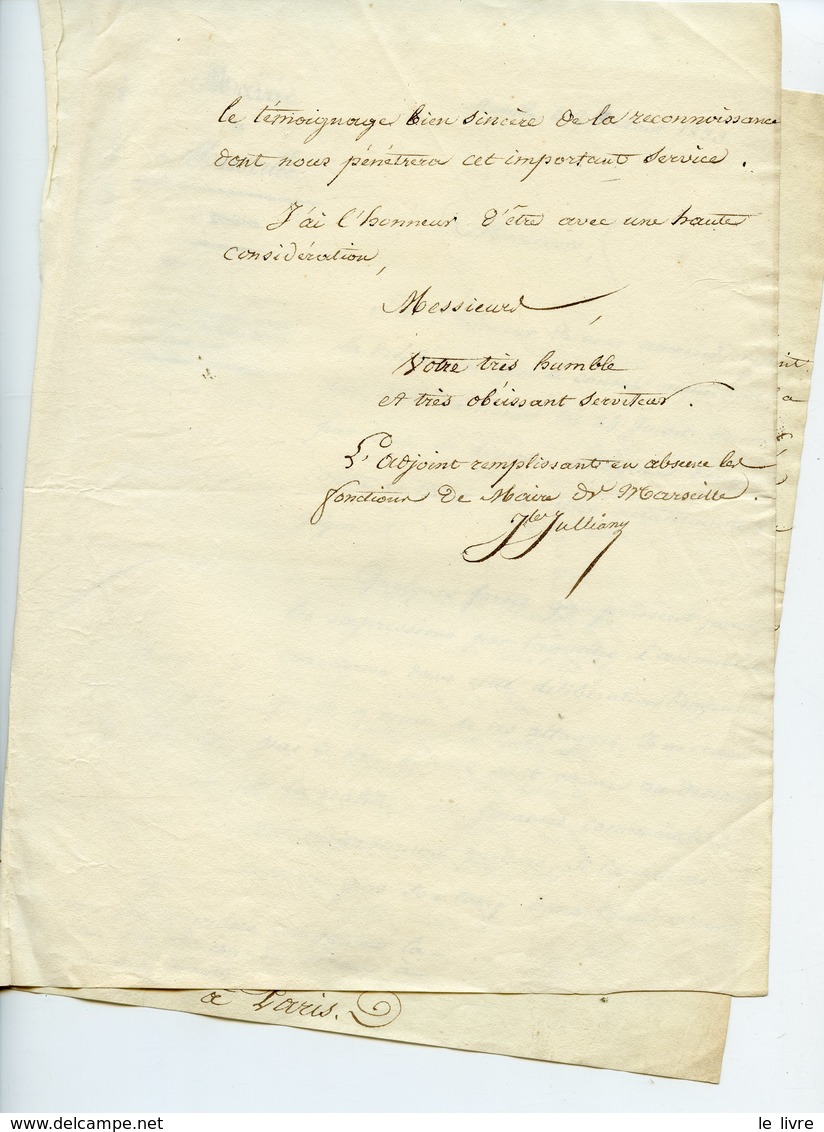 le témoignage bien sincère de la reconnoissance
dont nous pénétrera cet important service.
J'ai l'honneur d'être avec une haute
considération,
Messieurs,
Votre très humble
et très obéissant serviteur.
L'adjoint remplissant en absence les
fonctions de Maire de Marseille.
Jles Julliany
à Paris.
delcampe.net
le livre